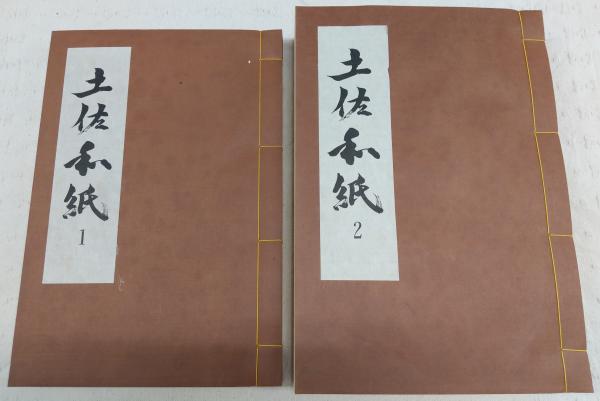 土佐和紙
1
土佐和紙
2